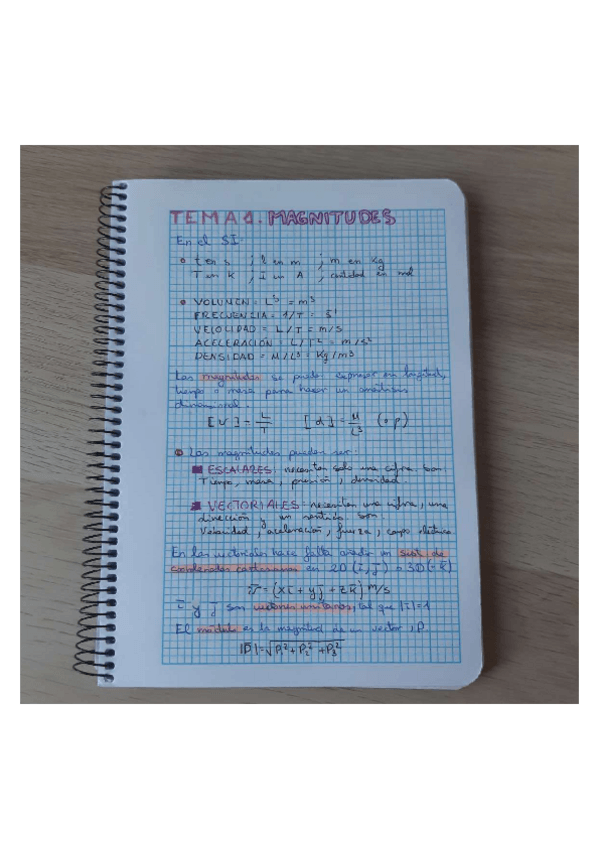 TEMA 1. MAGNITUDES
En el SI:
t en s ; l en m ; m en Kg
T en K ; I en A ; cantidad en mol
VOLUMEN = L³ = m³
FRECUENCIA = 1/T = s⁻¹
VELOCIDAD = L/T = m/s
ACELERACIÓN = L/T² = m/s²
DENSIDAD = M/L³ = Kg/m³
Las magnitudes se puede expresar en longitud,
tiempo o masa para hacer un análisis
dimensional.
[v] = L/T [d] = M/L³ (o ρ)
Las magnitudes pueden ser:
ESCALARES: necesitan solo una cifra. Son:
Tiempo, masa, presión, densidad.
VECTORIALES: necesitan una cifra, una
dirección y un sentido. Son:
Velocidad, aceleración, fuerza, campo eléctrico
En las vectoriales hace falta añadir un sist. de
coordenadas cartesianas en 2D (i, j) o 3D (+k)
v = (xi + yj + zk) m/s
i y j son vectores unitarios, tal que |i| = 1
El módulo es la magnitud de un vector, P.
|P| = √P₁² + P₂² + P₃²